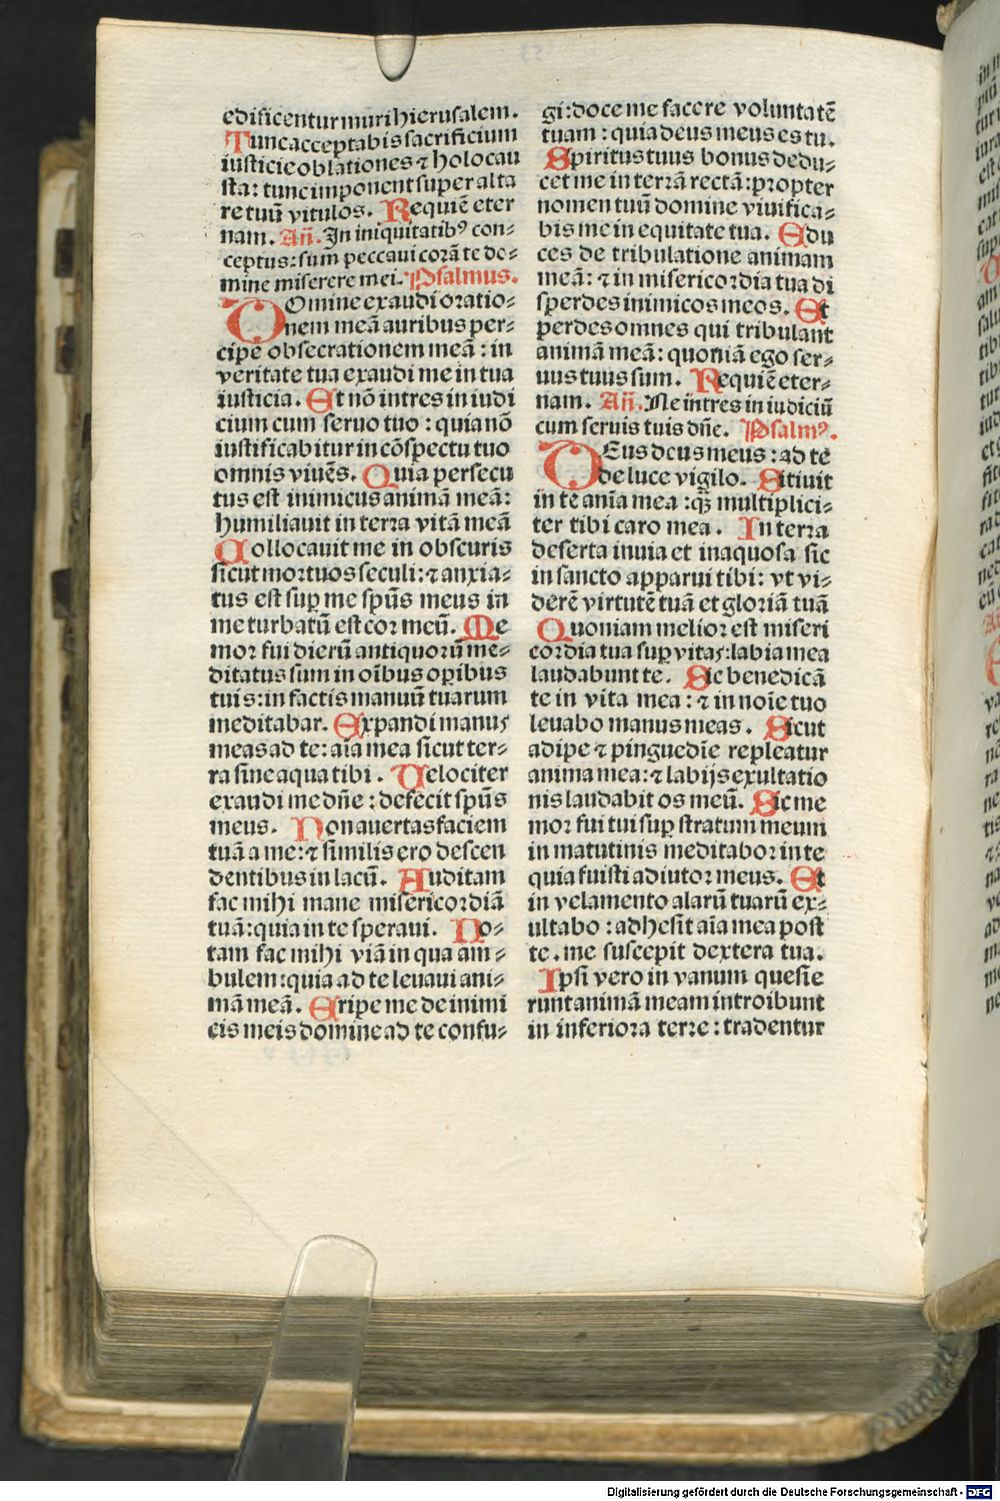 edificentur muri hierusalem.
Tunc acceptabis sacrificium
iusticie oblationes ⁊ holocau
sta: tunc imponent super alta
re tuū vitulos. Requiē eter
nam. An̄. In iniquitatibꝰ con⸗
ceptus: sum peccaui corā te do⸗
mine miserere mei. Psalmus.
DOmine exaudi oratio⸗
nem meā auribus per⸗
cipe obsecrationem meā : in
veritate tua exaudi me in tua
iusticia. Et nō intres in iudi
cium cum seruo tuo : quia nō
iustificabitur in cōspectu tuo
omnis viuēs. Quia persecu
tus est inimicus animā meā:
humiliauit in terra vitā meā
Collocauit me in obscuris
sicut mortuos seculi: ⁊ anxia⸗
tus est suꝑ me spūs meus in
me turbatū est cor meū. Me
mor fui dierū antiquorū me⸗
ditatus sum in oībus operibus
tuis: in factis manuū tuarum
meditabar. Expandi manus
meas ad te: aīa mea sicut ter⸗
ra sine aqua tibi. Velociter
exaudi me dn̄e : defecit spūs
meus. Non auertas faciem
tuā a me: ⁊ similis ero descen
dentibus in lacū. Auditam
fac mihi mane misericordiā
tuā: quia in te speraui. No⸗
tam fac mihi viā in qua am⸗
bulem: quia ad te leuaui ani⸗
mā meā. Eripe me de inimi
cis meis domine ad te confu⸗
gi: doce me facere voluntatē
tuam : quia deus meus es tu.
Spiritus tuus bonus dedu⸗
cet me in terrā rectā: propter
nomen tuū domine viuifica⸗
bis me in equitate tua. Edu
ces de tribulatione animam
meā: ⁊ in misericordia tua di
sperdes inimicos meos. Et
perdes omnes qui tribulant
animā meā: quoniā ego ser⸗
uus tuus sum. Requiē eter⸗
nam. An̄. Ne intres in iudiciū
cum seruis tuis dn̄e. Psalmꝰ.
DEus deus meus : ad te
de luce vigilo. Sitiuit
in te anīa mea : q̄ꝫ multiplici⸗
ter tibi caro mea. In terra
deserta inuia et inaquosa sic
in sancto apparui tibi: vt vi⸗
derē virtutē tuā et gloriā tuā
Quoniam melior est miseri
cordia tua suꝑ vitas: labia mea
laudabunt te. Sic benedicā
te in vita mea : ⁊ in noīe tuo
leuabo manus meas. Sicut
adipe ⁊ pinguedīe repleatur
anima mea: ⁊ labijs exultatio
nis laudabit os meū. Sic me
mor fui tui suꝑ stratum meum
in matutinis meditabor in te
quia fuisti adiutor meus. Et
in velamento alarū tuarū ex⸗
ultabo : adhesit aīa mea post
te. me suscepit dextera tua.
Ipsi vero in vanum quesie
runt animā meam introibunt
in inferiora terre: tradentur
Digitalisierung gefördert durch die Deutsche Forschungsgemeinschaft - DFG